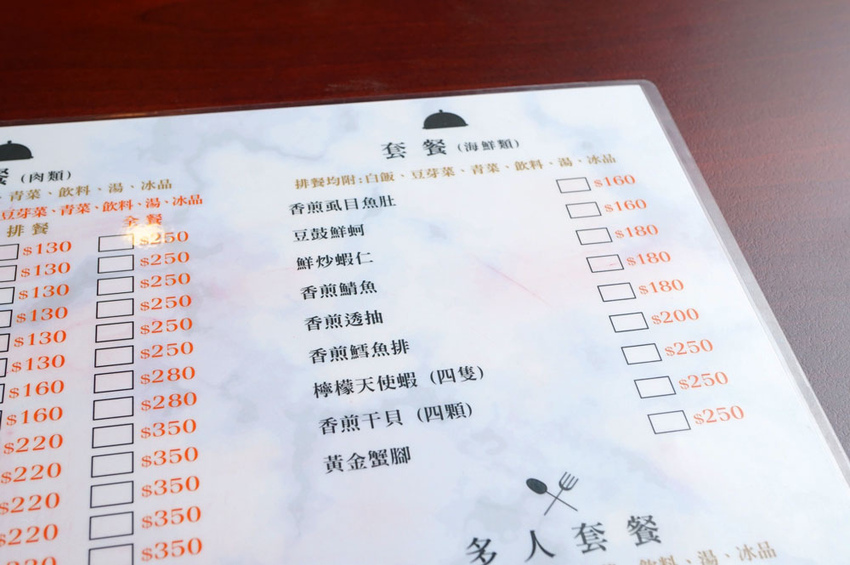 餐(肉類)
青菜、飲料、湯、冰品
豆芽菜、青菜、飲料、湯、冰品
排餐 全餐
$130 $250
$130 $250
$130 $250
$130 $250
$130 $250
$130 $280
$160 $280
$160 $350
$220 $350
$220 $350
$220 $350
$220 $350
套餐(海鮮類)
排餐均附:白飯、豆芽菜、青菜、飲料、湯、冰品
香煎虱目魚肚 $160
豆鼓鮮蚵 $160
鮮炒蝦仁 $180
香煎鯖魚 $180
香煎透抽 $180
香煎鱈魚排 $200
檸檬天使蝦(四隻) $250
香煎干貝(四顆) $250
黃金蟹腳 $250
多人套餐
飲料、湯、冰品